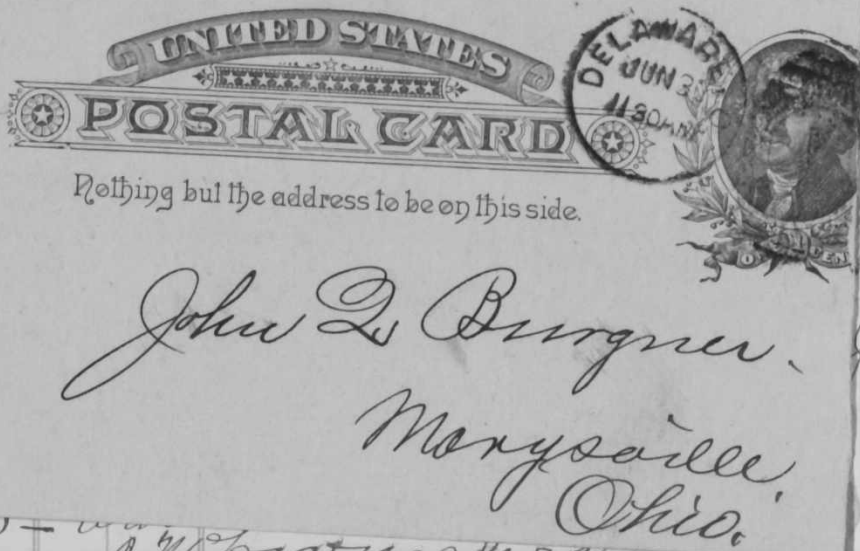 UNITED STATES
POSTAL CARD
DELAWARE
JUN 3
11 30 AM
Nothing but the address to be on this side.
John Q Burgner.
Marysville,
Ohio.